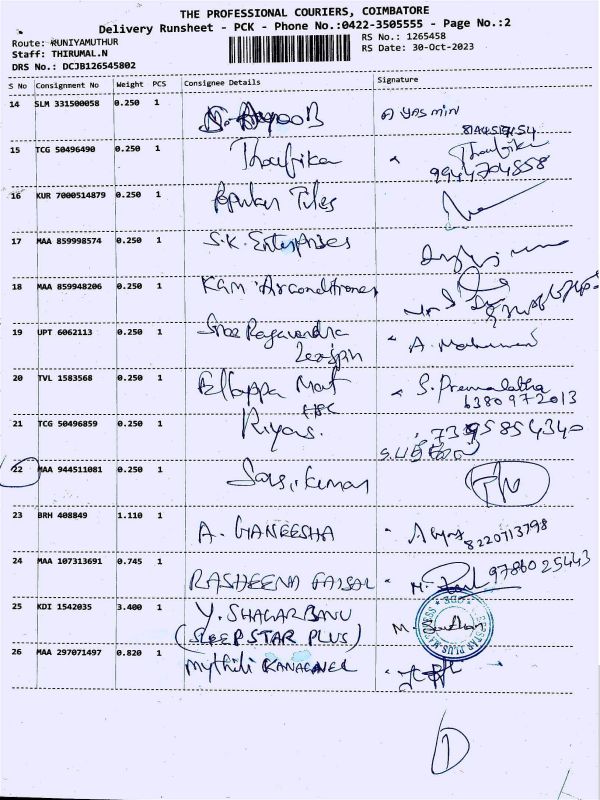 THE PROFESSIONAL COURIERS, COIMBATORE
Delivery Runsheet - PCK - Phone No.:0422-3505555 - Page No.:2
Route: KUNIYAMUTHUR
RS No.: 1265458
Staff: THIRUMAL.N
RS Date: 30-Oct-2023
DRS No.: DCJB126545802
S No Consignment No Weight PCS Consignee Details Signature
14 SLM 331500058 0.250 1 A YASMIN
15 TCG 50496490 0.250 1 Thoufika Thoufika
9944704858
16 KUR 7000514879 0.250 1 Popular Tiles
17 MAA 859998574 0.250 1 S.K. Enterprises
18 MAA 859948206 0.250 1 KGM Airconditioner
19 UPT 6062113 0.250 1 Sree Ragavendra A. Mohamed
20 TVL 1583568 0.250 1 Ellappa Mart S. Premalatha
6380972013
21 TCG 50496859 0.250 1 Riyas.
22 MAA 944511081 0.250 1 Sasi kumar
23 BRH 408849 1.110 1 A. GANEESHA
8220713798
24 MAA 107313691 0.745 1 RASHEENA FAISAL 9786025443
25 KDI 1542035 3.400 1 Y. SHAGARBANU
(SLEEP STAR PLUS)
26 MAA 297071497 0.820 1 Mythili KANAGAVEL
1